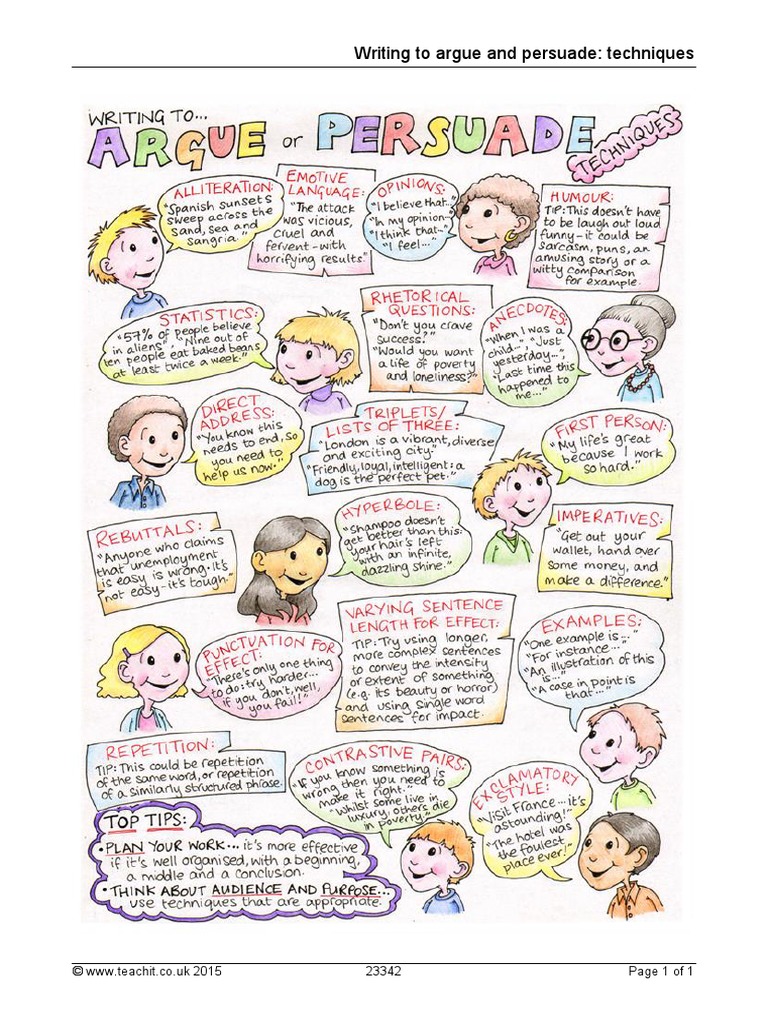 Writing to argue and persuade: techniques
WRITING TO...
ARGUE or PERSUADE
TECHNIQUES
ALLITERATION:
"Spanish sunsets
sweep across the
sand, sea and
sangria."
EMOTIVE
LANGUAGE:
"The attack
was vicious,
cruel and
fervent-with
horrifying results."
OPINIONS:
"I believe that..."
"In my opinion..."
"I think that..."
"I feel..."
HUMOUR:
TIP: This doesn't have
to be laugh out loud
funny-it could be
sarcasm, puns, an
amusing story or a
witty comparison
for example.
STATISTICS:
"57% of people believe
in aliens" "Nine out of
ten people eat baked beans
at least twice a week."
RHETORICAL
QUESTIONS:
"Don't you crave
success?"
"Would you want
a life of poverty
and loneliness?"
ANECDOTES:
"When I was a
child...", "Just
yesterday..."
"Last time this
happened to
me..."
DIRECT
ADDRESS:
"You know this
needs to end, so
you need to
help us now."
TRIPLETS/
LISTS OF THREE:
"London is a vibrant, diverse
and exciting city."
"Friendly, loyal, intelligent: a
dog is the perfect pet."
FIRST PERSON:
"My life's great
because I work
so hard."
REBUTTALS:
"Anyone who claims
that unemployment
is easy is wrong-it's
not easy-it's tough."
HYPERBOLE:
"Shampoo doesn't
get better than this:
your hair's left
with an infinite,
dazzling shine."
IMPERATIVES:
"Get out your
wallet, hand over
some money, and
make a difference."
PUNCTUATION FOR
EFFECT:
"There's only one thing
to do: try harder...
if you don't, well,
you fail!"
VARYING SENTENCE
LENGTH FOR EFFECT:
TIP: Try using longer,
more complex sentences
to convey the intensity
or extent of something
(e.g. its beauty or horror)
and using single word
sentences for impact.
EXAMPLES:
"One example is..."
"For instance..."
"An illustration of this
is..."
"A case in point is
that..."
REPETITION:
TIP: This could be repetition
of the same word, or repetition
of a similarly structured phrase.
CONTRASTIVE PAIRS:
"If you know something is
wrong then you need to
make it right."
"Whilst some live in
luxury, others die
in poverty."
EXCLAMATORY
STYLE:
"Visit France...it's
astounding!"
"The hotel was
the foulest
place ever!"
TOP TIPS:
• PLAN YOUR WORK... it's more effective
if it's well organised, with a beginning,
a middle and a conclusion.
• THINK ABOUT AUDIENCE AND PURPOSE...
use techniques that are appropriate.
© www.teachit.co.uk 2015
23342
Page 1 of 1